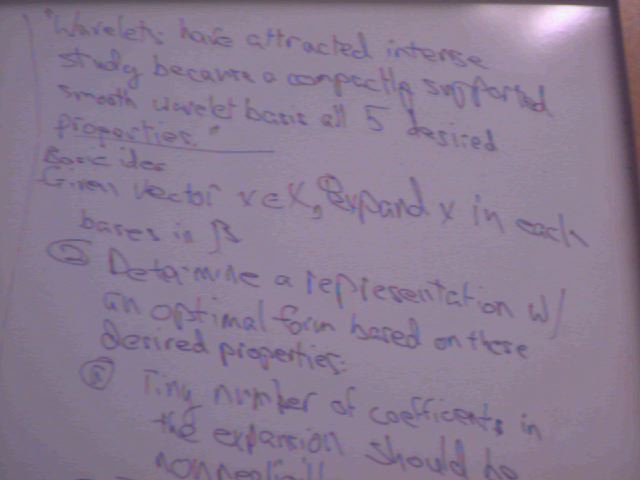 "Wavelets have attracted intense
study because a compactly supported
smooth wavelet basis all 5 desired
properties."
Basic idea
Given vector x ∈ X, ① expand x in each
bases in β
② Determine a representation w/
an optimal form based on these
desired properties:
ⓐ Tiny number of coefficents in
the expansion should be